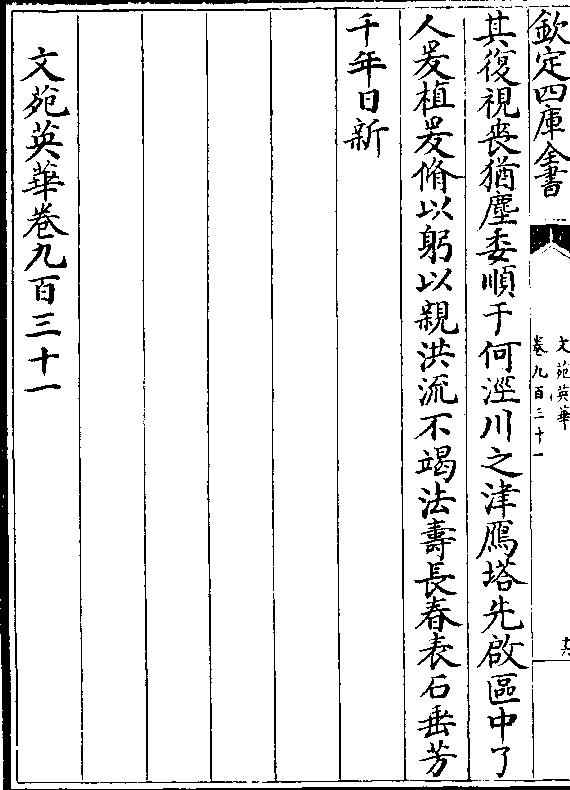 欽定四庫全書
文苑英華
卷九百三十一
其復視喪猶塵委順于何涇川之津鴈塔先啟區中了
人爰植爰脩以躬以親洪流不竭法壽長春表石垂芳
千年日新
文苑英華卷九百三十一